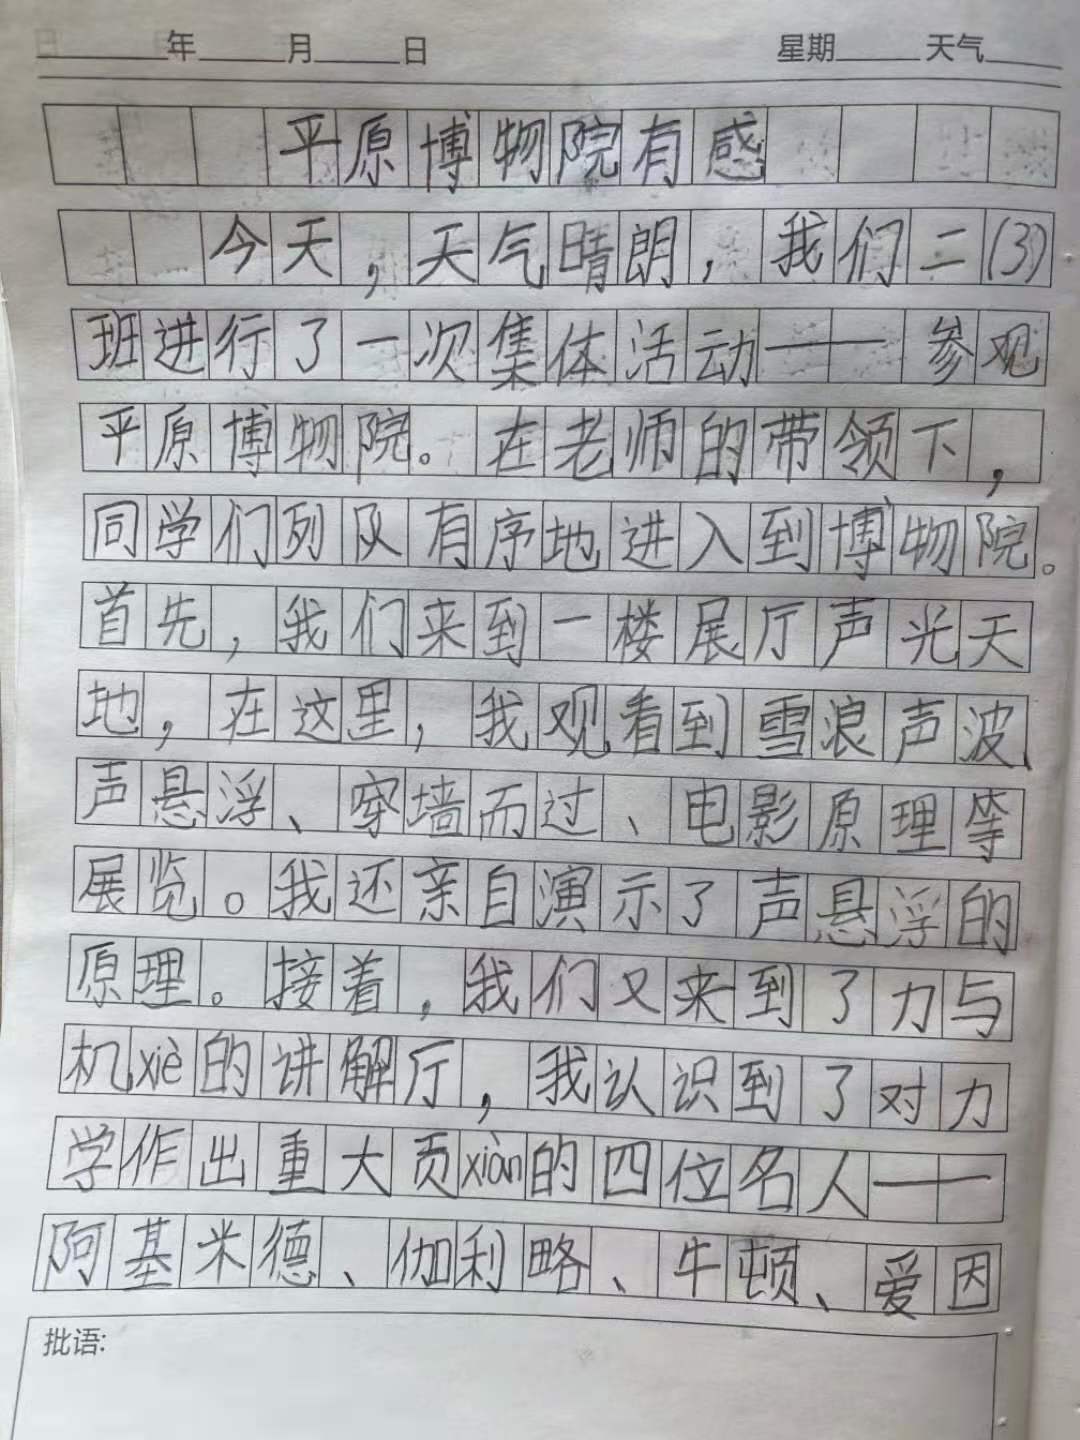 年 月 日 星期 天气
平原博物院有感
今天,天气晴朗,我们二(3)
班进行了一次集体活动——参观
平原博物院。在老师的带领下,
同学们列队有序地进入到博物院。
首先,我们来到一楼展厅声光天
地,在这里,我观看到雪浪声波、
声悬浮、穿墙而过、电影原理等
展览。我还亲自演示了声悬浮的
原理。接着,我们又来到了力与
机xiè的讲解厅,我认识到了对力
学作出重大贡xiàn的四位名人——
阿基米德、伽利略、牛顿、爱因
批语: